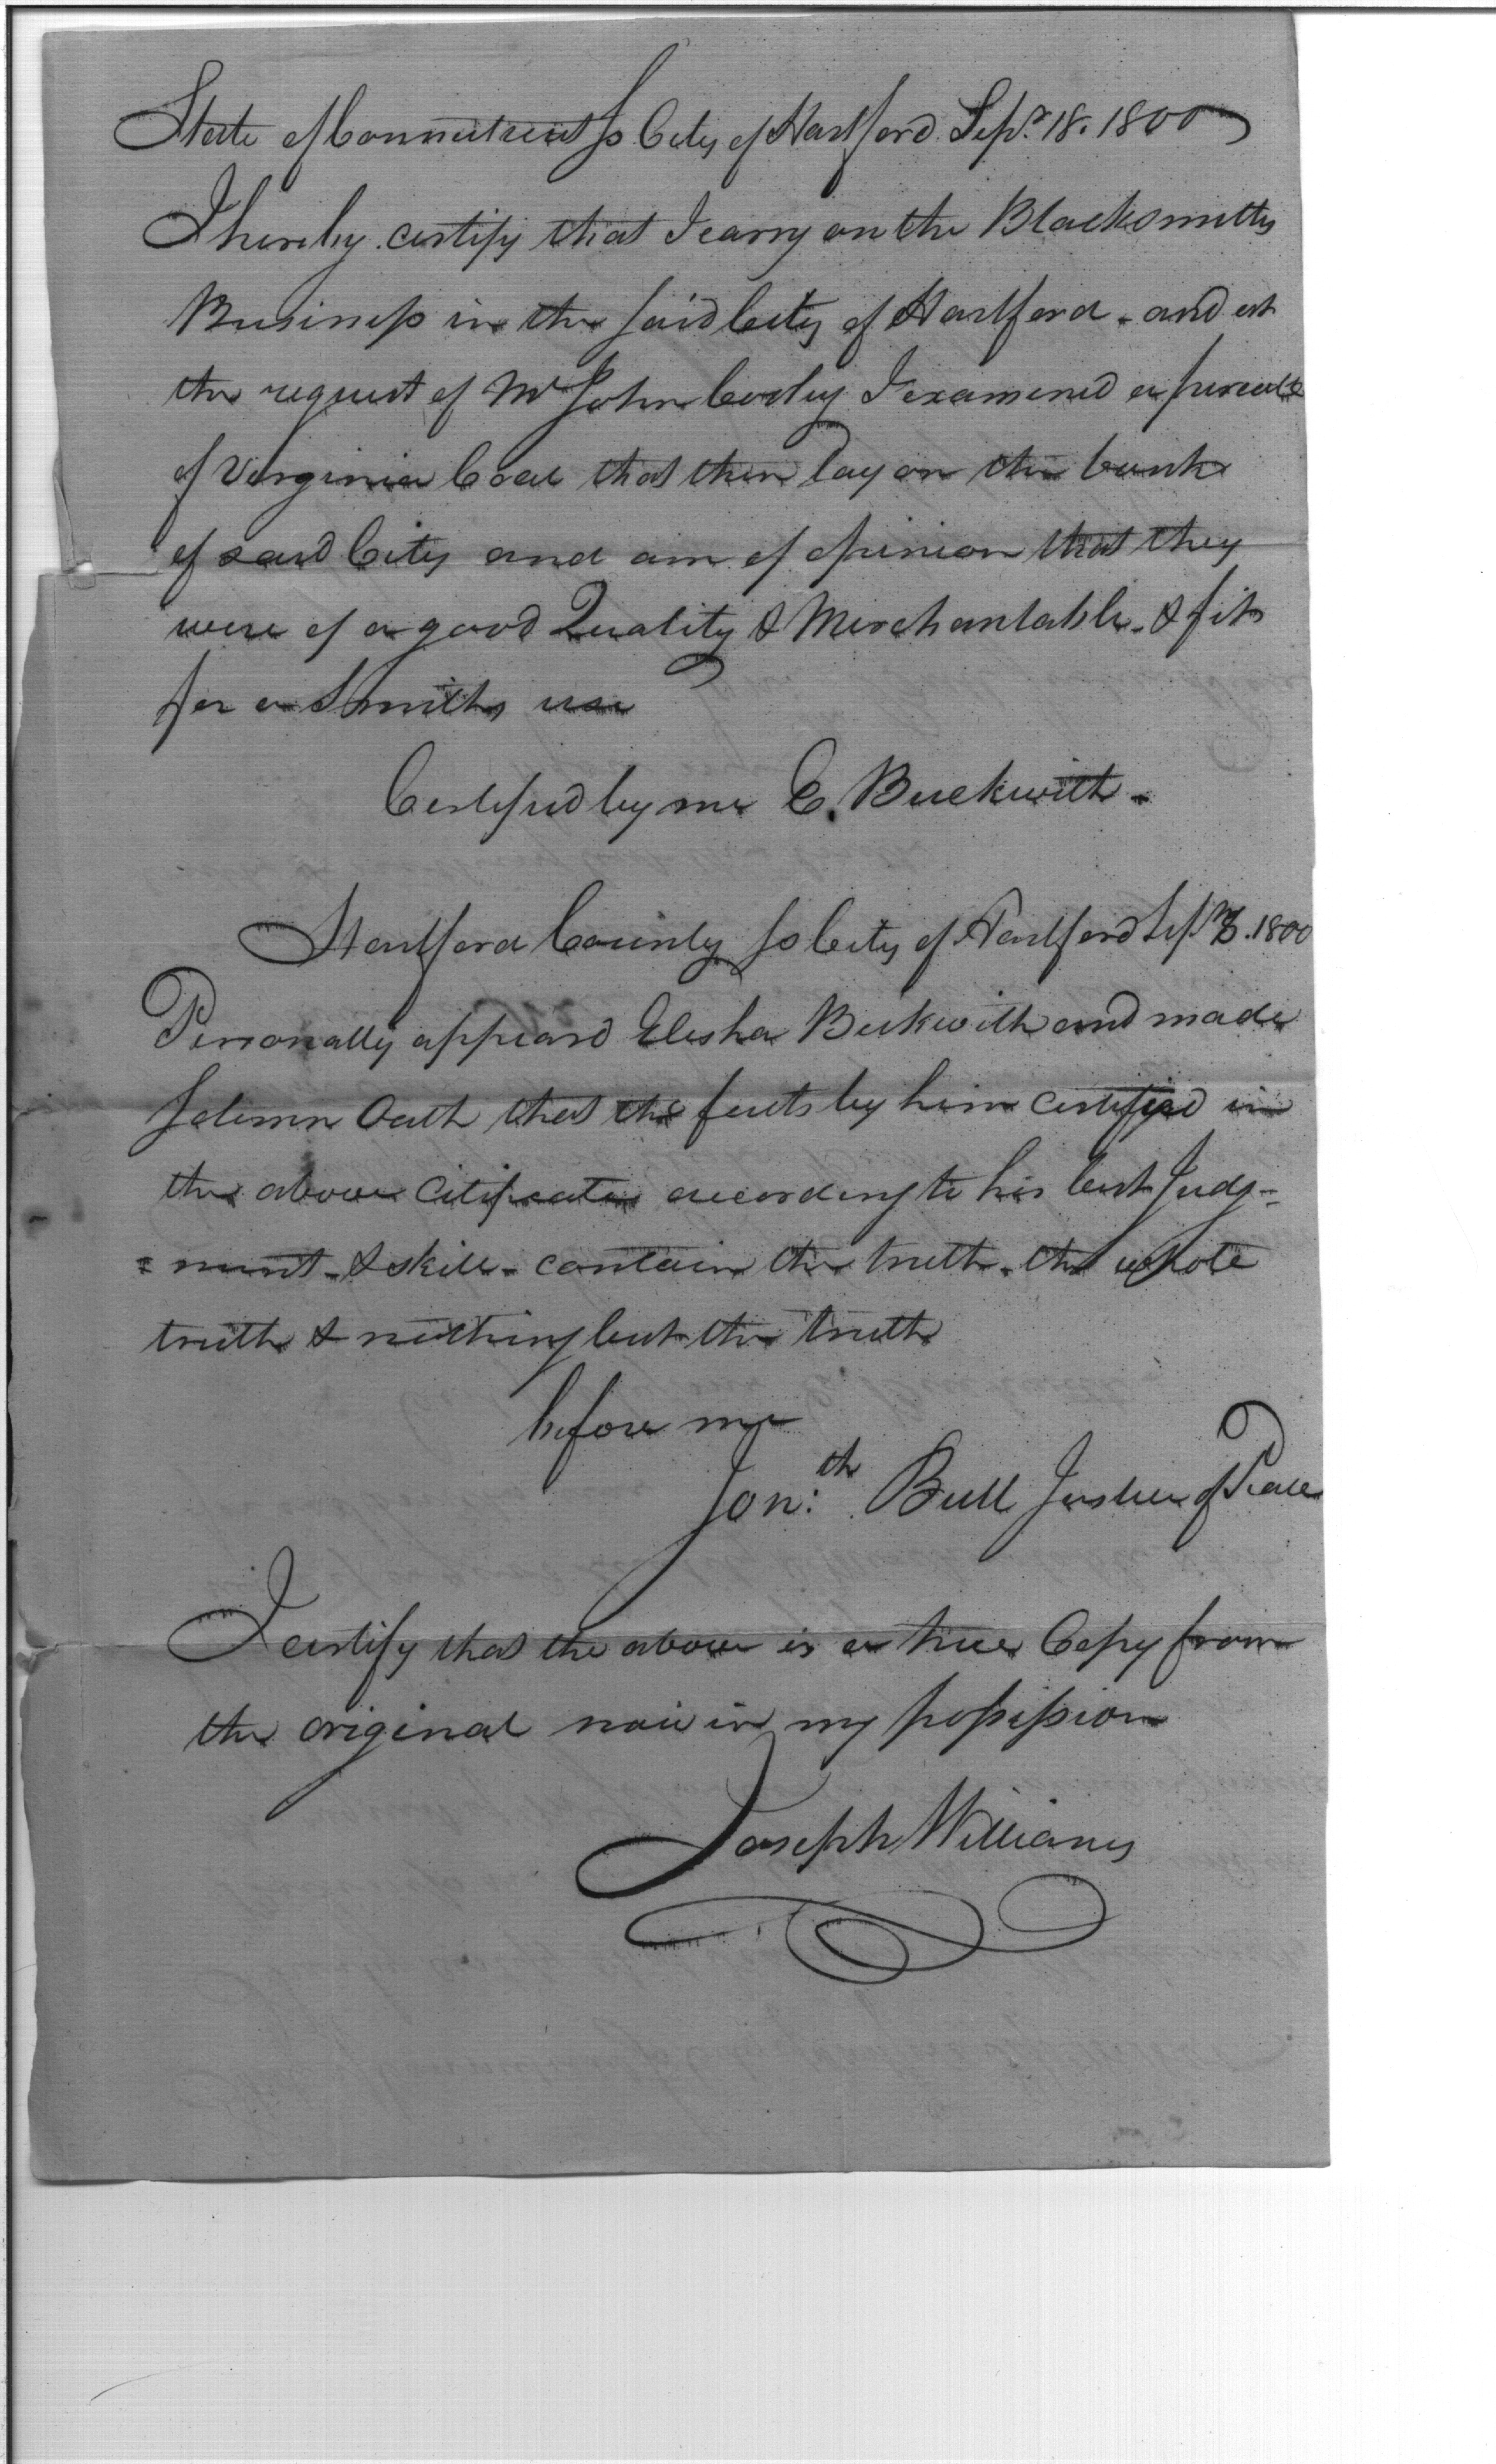 State of Connecticut ss City of Hartford Sepr. 18. 1800
I hereby certify that I carry on the Blacksmiths
Business in the said City of Hartford - and at
the request of Mr John I examined a
of Virginia Coal that then lay on the bank
of said City and am of opinion that they
were of a good Quality & Merchantable - & fit
for a Smiths use
Certified by me E. Beckwith -
Hartford County ss City of Hartford Sepr 1800
Personally appeard Elisha Beckwith and made
solemn Oath that the facts by him certified in
the above Citificate according to his best Judg=
=ment - & skill - contain the truth - the whole
truth & nothing but the truth
before me
Jon:th Bull Justice of Peace
I certify that the above is a true Copy from
the original now in my possession
Joseph Williams